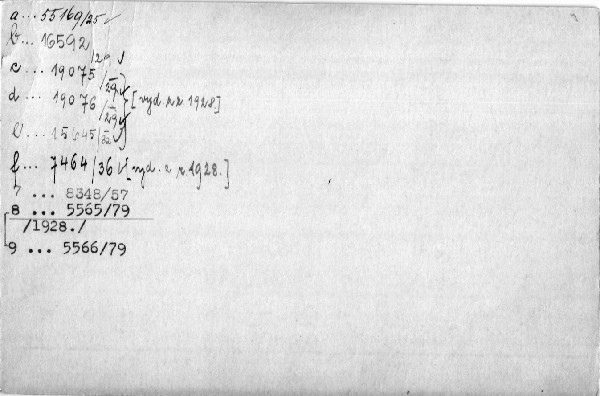 a ... 55169/25 ✓
b ... 16592/29 ✓
c ... 19075/29 ✓
d ... 19076/29 ✓ [vyd. z r. 1928.]
e ... 15645/32 ✓
f ... 7464/36 ✓ [vyd. z r. 1928.]
7 ... 8348/57
8 ... 5565/79
/1928./
9 ... 5566/79